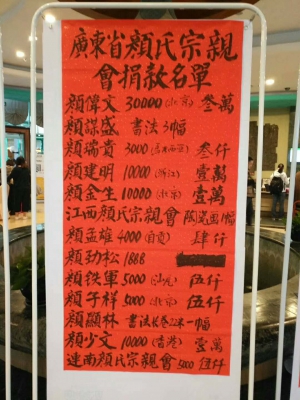 廣東省顏氏宗親
會捐款名單
顏偉文 30000 (北京) 叁萬
顏謀盛 書法3幅
顏瑞貴 3000 叁仟
顏建明 10000 (浙江) 壹萬
顏金生 10000 (北京) 壹萬
江西顏氏宗親會 陶瓷画1幅
顏孟雄 4000 (自貢) 肆仟
顏劲松 1888
顏铁軍 5000 (汕尾) 伍仟
顏子祥 5000 (北京) 伍仟
顏顯林 書法長卷22米一幅
顏少文 10000 (香港) 壹萬
连南顏氏宗親會 5000 伍仟